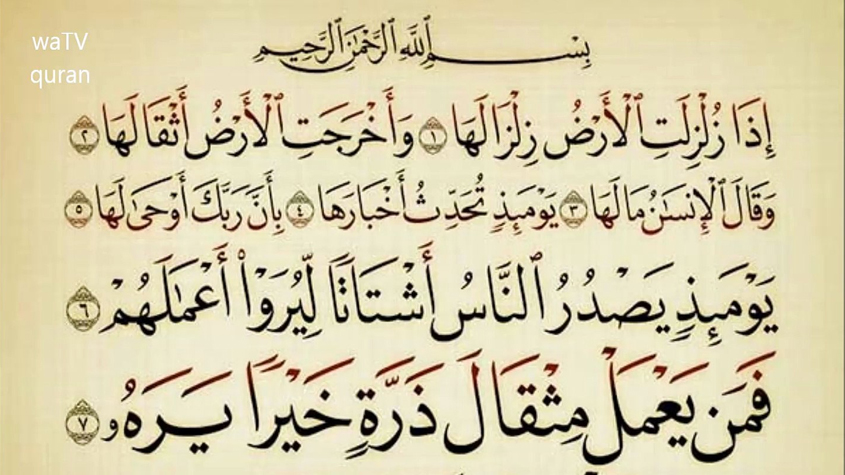 waTV
quran
بِسْمِ ٱللَّهِ ٱلرَّحْمَٰنِ ٱلرَّحِيمِ
إِذَا زُلْزِلَتِ ٱلْأَرْضُ زِلْزَالَهَا ١ وَأَخْرَجَتِ ٱلْأَرْضُ أَثْقَالَهَا ٢
وَقَالَ ٱلْإِنسَٰنُ مَا لَهَا ٣ يَوْمَئِذٍ تُحَدِّثُ أَخْبَارَهَا ٤ بِأَنَّ رَبَّكَ أَوْحَىٰ لَهَا ٥
يَوْمَئِذٍ يَصْدُرُ ٱلنَّاسُ أَشْتَاتًا لِّيُرَوْا۟ أَعْمَٰلَهُمْ ٦
فَمَن يَعْمَلْ مِثْقَالَ ذَرَّةٍ خَيْرًا يَرَهُۥ ٧